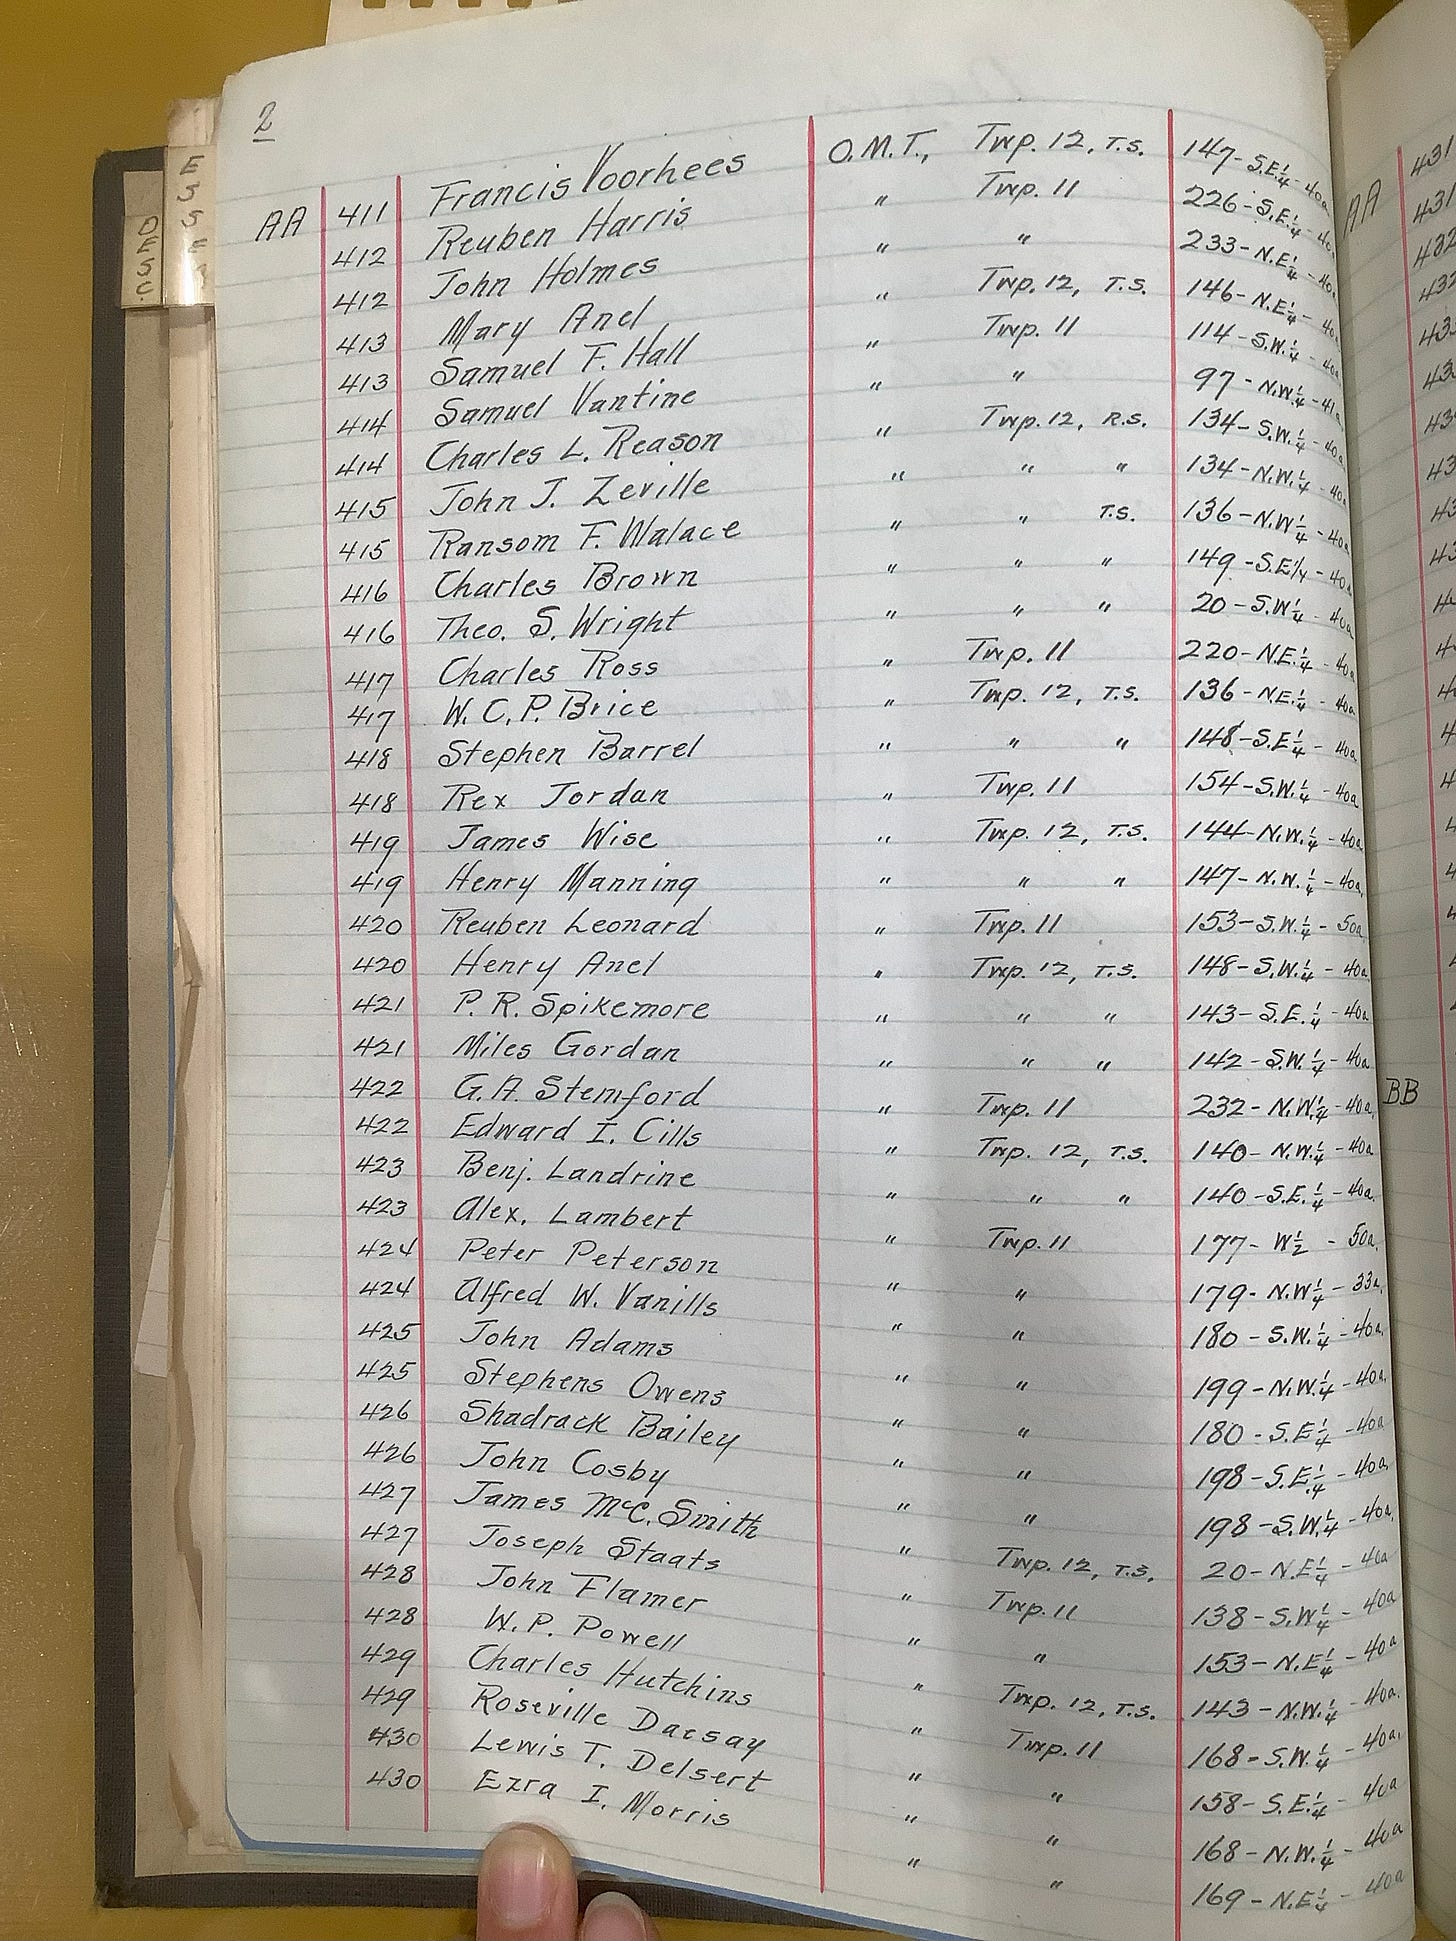 2
E S S E
DESC.
AA 411 Francis Voorhees O.M.T., Twp. 12, T.S. 147 - S.E.¼ - 40a
412 Reuben Harris " Twp. 11 226 - S.E.¼ - 40
412 John Holmes " " 233 - N.E.¼ - 40a
413 Mary Anel " Twp. 12, T.S. 146 - N.E.¼ - 40
413 Samuel F. Hall " Twp. 11 114 - S.W.¼ - 40a
414 Samuel Vantine " " 97 - N.W.¼ - 41a
414 Charles L. Reason " Twp. 12, R.S. 134 - S.W.¼ - 40a
415 John J. Zeville " " " 134 - N.W.¼ - 40a
415 Ransom F. Walace " " T.S. 136 - N.W¼ - 40a
416 Charles Brown " " " 149 - S.E¼ - 40a
416 Theo. S. Wright " " " 20 - S.W¼ - 40a
417 Charles Ross " Twp. 11 220 - N.E.¼ - 40a
417 W. C. P. Brice " Twp. 12, T.S. 136 - N.E.¼ - 40a
418 Stephen Barrel " " " 148 - S.E¼ - 40a
418 Rex Jordan " Twp. 11 154 - S.W.¼ - 40a
419 James Wise " Twp. 12, T.S. 144 - N.W.¼ - 40a
419 Henry Manning " " " 147 - N.W.¼ - 40a,
420 Reuben Leonard " Twp. 11 153 - S.W.¼ - 50a
420 Henry Anel " Twp. 12, T.S. 148 - S.W.¼ - 40a
421 P. R. Spikemore " " " 143 - S.E.¼ - 40a
421 Miles Gordan " " " 142 - S.W.¼ - 40a
422 G. A. Stemford " Twp. 11 232 - N.W.¼ - 40a,
422 Edward I. Cills " Twp. 12, T.S. 140 - N.W.¼ - 40a
423 Benj. Landrine " " " 140 - S.E.¼ - 40a.
423 Alex. Lambert " Twp. 11 177 - W½ - 50a.
424 Peter Peterson " " 179 - N.W¼ - 33a.
424 Alfred W. Vanills " " 180 - S.W.¼ - 40a,
425 John Adams " " 199 - N.W.¼ - 40a,
425 Stephens Owens " " 180 - S.E¼ - 40a
426 Shadrack Bailey " " 198 - S.E.¼ - 40a,
426 John Cosby " " 198 - S.W.¼ - 40a,
427 James McC. Smith " Twp. 12, T.S. 20 - N.E¼ - 40a
427 Joseph Staats " Twp. 11 138 - S.W¼ - 40a
428 John Flamer " " 153 - N.E¼ - 40a
428 W. P. Powell " Twp. 12, T.S. 143 - N.W.¼ - 40a.
429 Charles Hutchins " Twp. 11 168 - S.W.¼ - 40a,
429 Roseville Dacsay " " 158 - S.E.¼ - 40a
430 Lewis T. Delsert " " 168 - N.W.¼ - 40a
430 Ezra I. Morris " " 169 - N.E¼ - 40a
AA
BB